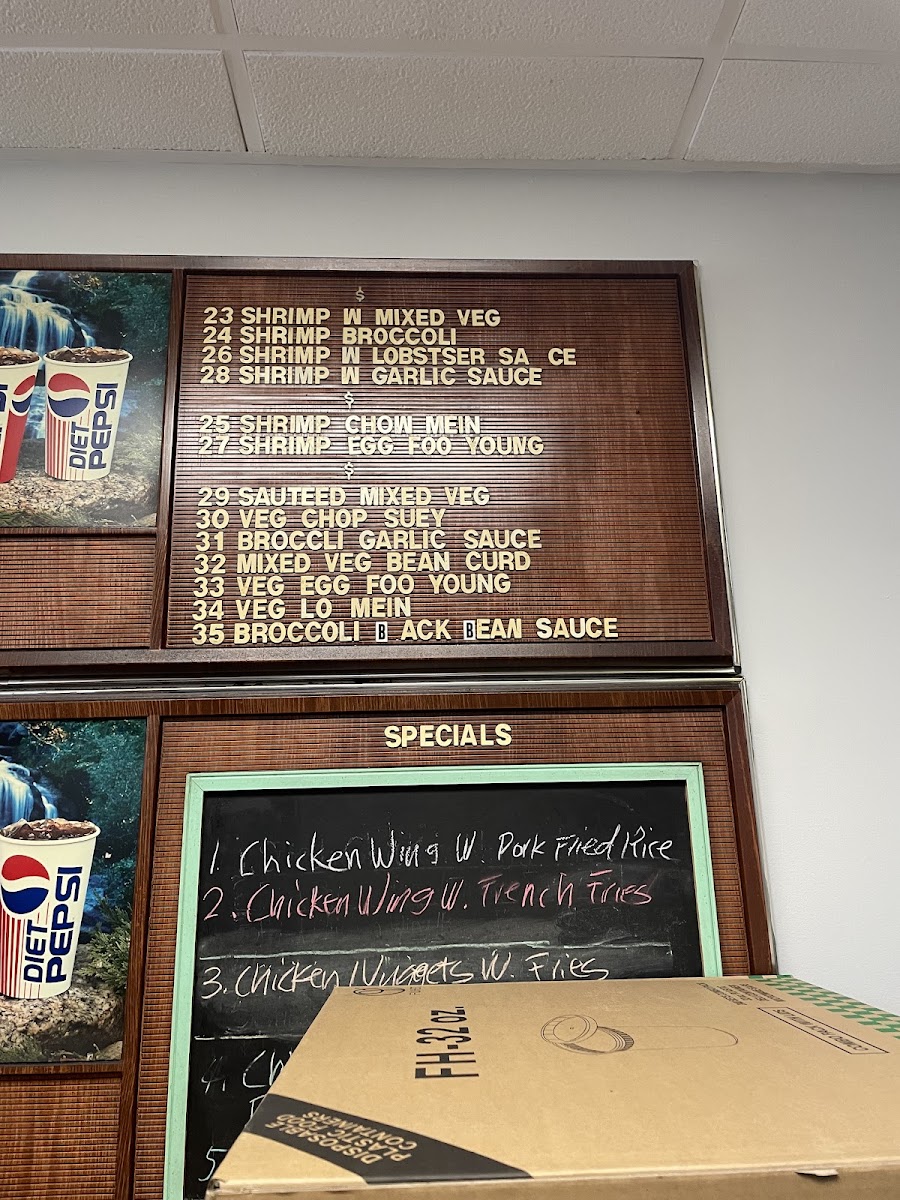 $
23 SHRIMP W MIXED VEG
24 SHRIMP BROCCOLI
26 SHRIMP W LOBSTSER SA CE
28 SHRIMP W GARLIC SAUCE
$
25 SHRIMP CHOW MEIN
27 SHRIMP EGG FOO YOUNG
$
29 SAUTEED MIXED VEG
30 VEG CHOP SUEY
31 BROCCLI GARLIC SAUCE
32 MIXED VEG BEAN CURD
33 VEG EGG FOO YOUNG
34 VEG LO MEIN
35 BROCCOLI B ACK BEAN SAUCE
DIET
PEPSI
SPECIALS
1. Chicken Wing W. Pork Fried Rice
2. Chicken Wing W. French Fries
3. Chicken Nuggets W. Fries
4. Chi
5
DIET
PEPSI
FH-32 oz.
COMBO PACK
DISPOSABLE
PLASTIC FOOD
CONTAINERS